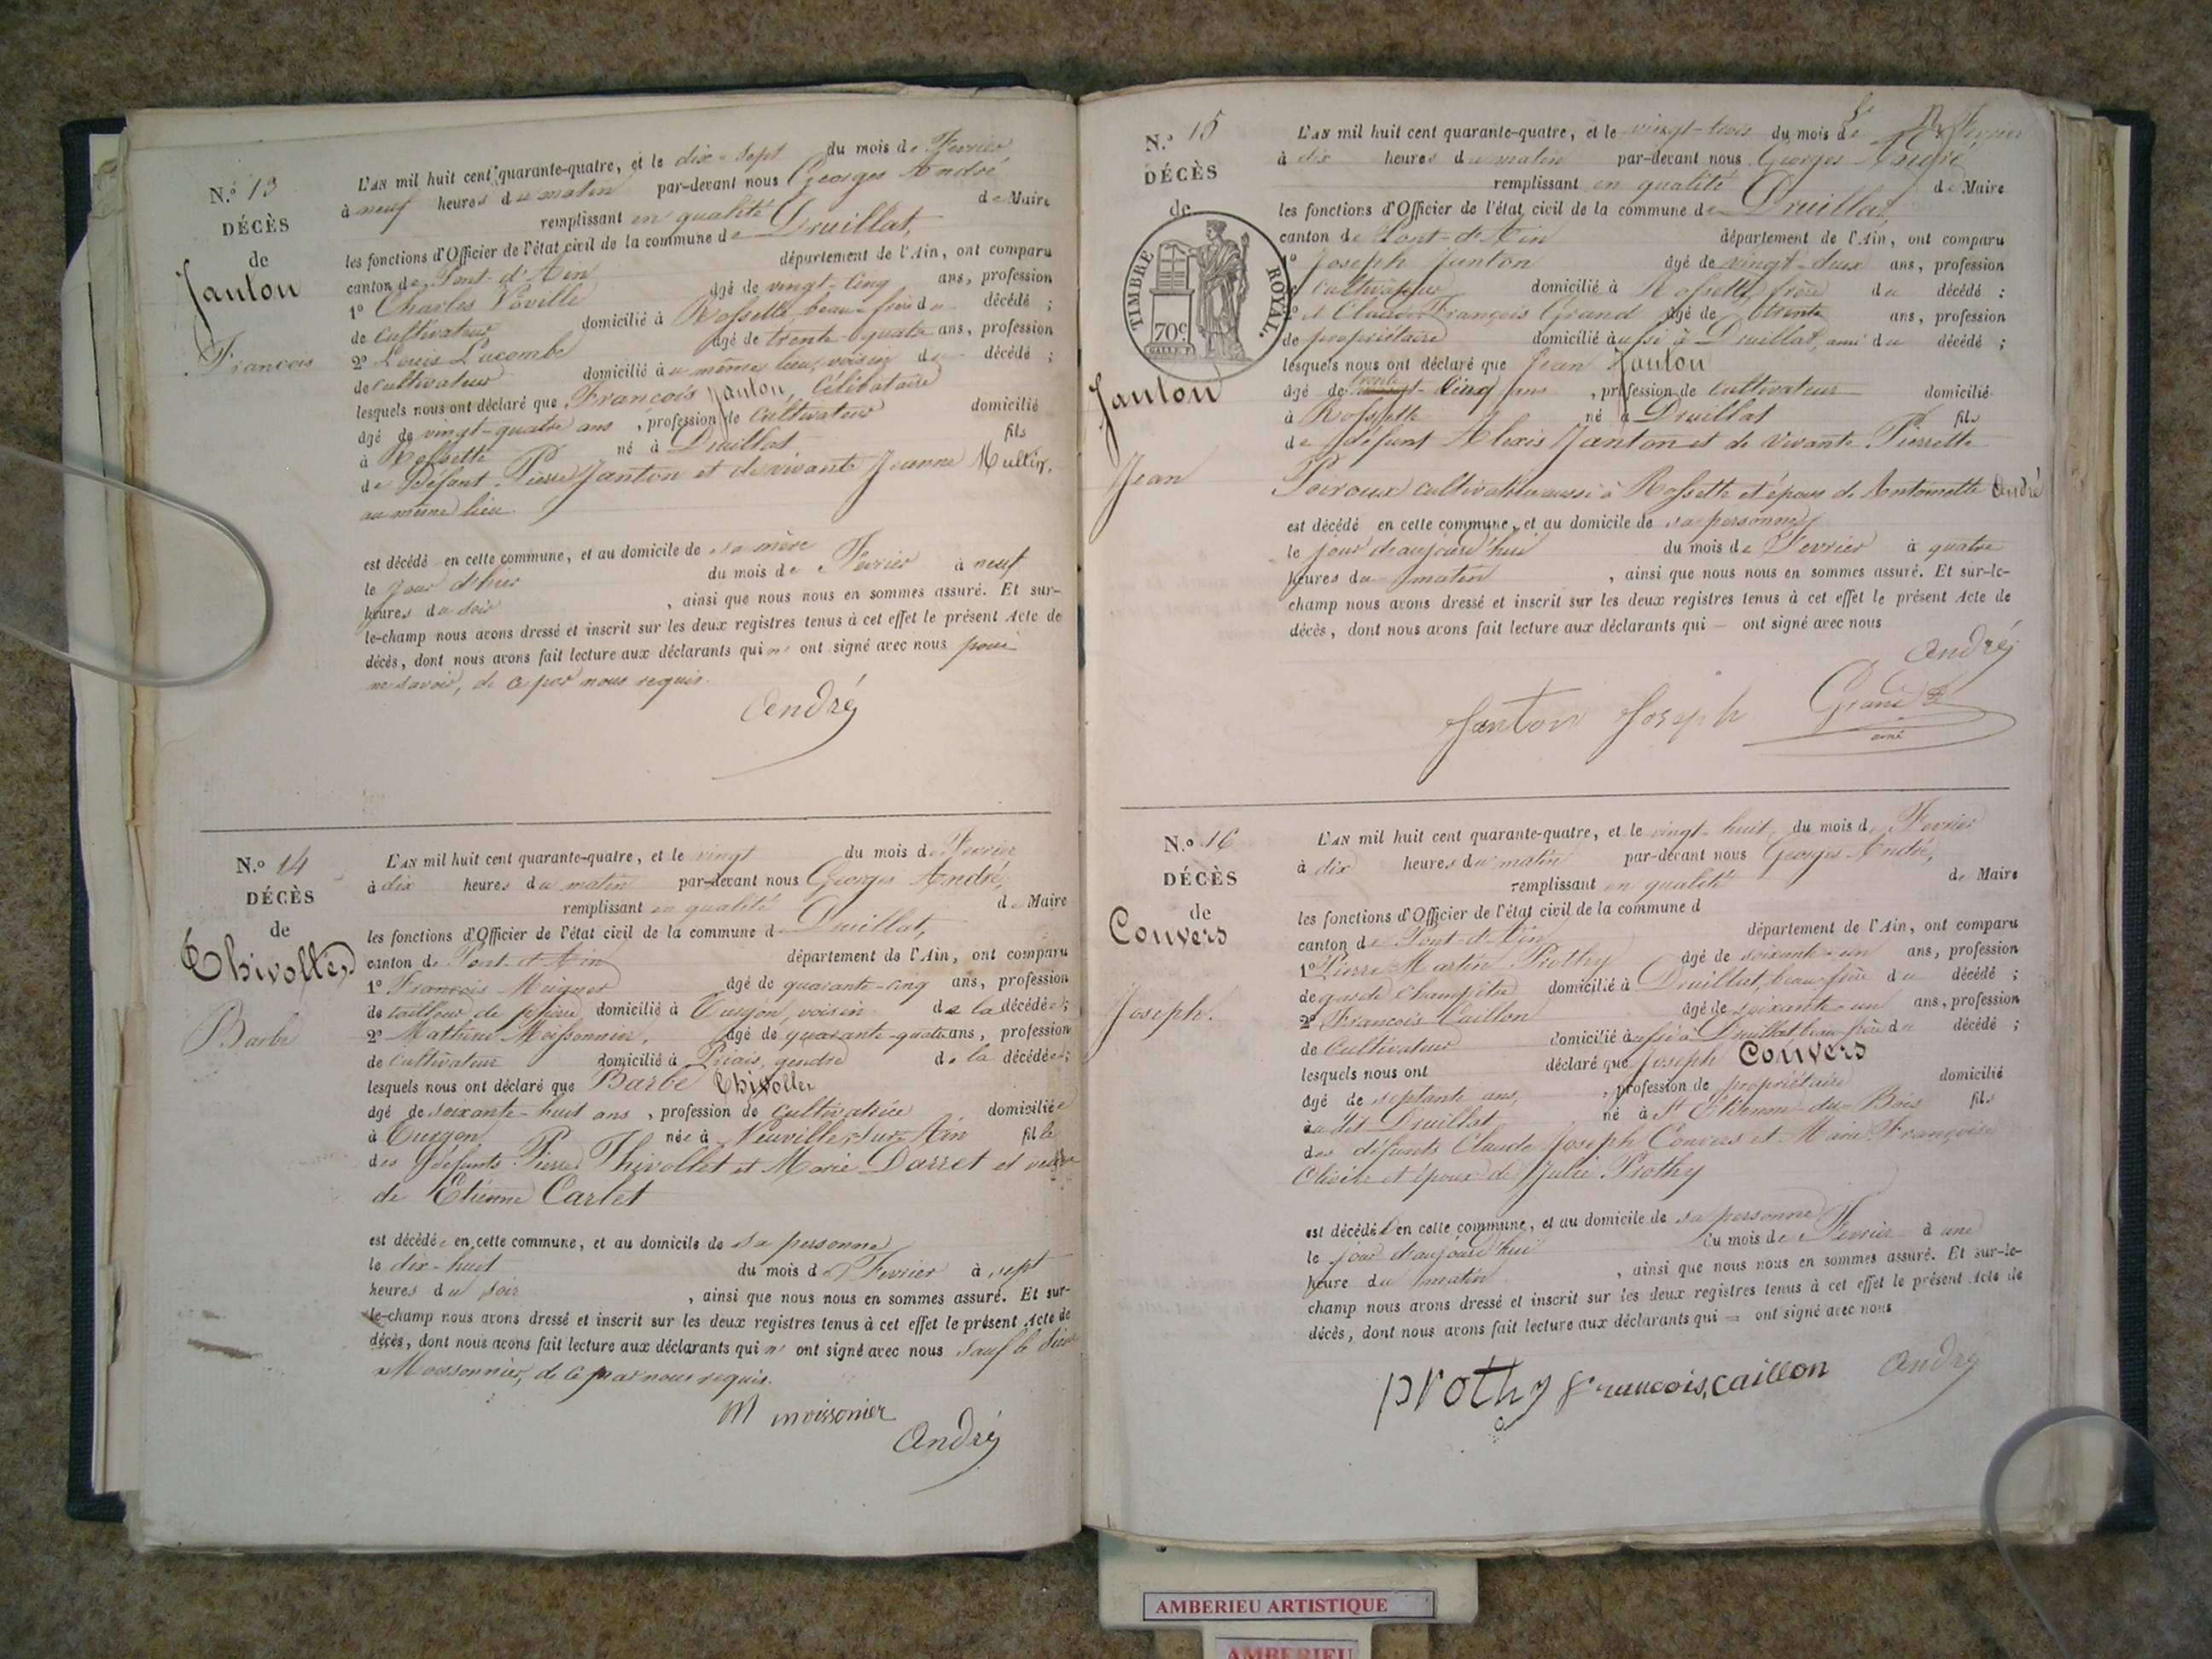 N.º 13
DÉCÈS
de
Janton
François
L'AN mil huit cent quarante-quatre, et le dix-sept du mois de Fevrier
à neuf heures du matin par-devant nous Georges André
remplissant en qualité de Maire
les fonctions d'Officier de l'état civil de la commune de Druillat,
canton de Pont-d'Ain département de l'Ain, ont comparu
1º Charles âgé de vingt-cinq ans, profession
de cultivateur domicilié à Rossette, beau-frère du décédé ;
2º Louis Lacombe âgé de trente-quatre ans, profession
de cultivateur domicilié au même lieu, voisin du décédé ;
lesquels nous ont déclaré que François Janton, célibataire
âgé de vingt-quatre ans , profession de cultivateur domicilié
à Rossette né à Druillat fils
de défunt Pierre Janton et de vivante Jeanne
au même lieu.
est décédé en cette commune, et au domicile de sa mère
le jour d'hier du mois de Fevrier à neuf
heures du soir , ainsi que nous nous en sommes assuré. Et sur-
le-champ nous avons dressé et inscrit sur les deux registres tenus à cet effet le présent Acte de
décès, dont nous avons fait lecture aux déclarants qui n' ont signé avec nous pour
ne savoir, de ce par nous requis.
André
N.º 14
DÉCÈS
de
Thivollet
Barbe
L'AN mil huit cent quarante-quatre, et le vingt du mois de Fevrier
à dix heures du matin par-devant nous Georges André,
remplissant en qualité de Maire
les fonctions d'Officier de l'état civil de la commune de Druillat,
canton de Pont-d'Ain département de l'Ain, ont comparu
1º François Muguet âgé de quarante-cinq ans, profession
de tailleur de pierre domicilié à Turgon, voisin de la décédée ;
2º Mathieu Moissonnier, âgé de quarante-quatre ans, profession
de cultivateur domicilié à Priais, gendre de la décédée ;
lesquels nous ont déclaré que Barbe Thivollet
âgé de soixante-huit ans , profession de cultivatrice domiciliée
à Turgon née à Neuville-sur-Ain fille
des défunts Pierre Thivollet et Marie Darret et veuve
de Etienne Carlet
est décédée en cette commune, et au domicile de sa personne
le dix-huit du mois de Fevrier à sept
heures du soir , ainsi que nous nous en sommes assuré. Et sur-
le-champ nous avons dressé et inscrit sur les deux registres tenus à cet effet le présent Acte de
décès, dont nous avons fait lecture aux déclarants qui n' ont signé avec nous sauf le
Moissonnier, de ce par nous requis.
M moissonier
André
N.º 15
DÉCÈS
de
TIMBRE ROYAL.
70 c.
Janton
Jean
L'AN mil huit cent quarante-quatre, et le vingt-trois du mois de Fevrier
à dix heures du matin par-devant nous Georges André
remplissant en qualité de Maire
les fonctions d'Officier de l'état civil de la commune de Druillat,
canton de Pont-d'Ain département de l'Ain, ont comparu
1º Joseph Janton âgé de vingt-deux ans, profession
de cultivateur domicilié à Rossette, frère du décédé ;
2º et Claude François Grand âgé de trente ans, profession
de propriétaire domicilié aussi à Druillat, ami du décédé ;
lesquels nous ont déclaré que Jean Janton
âgé de trente-cinq ans , profession de cultivateur domicilié
à Rossette né à Druillat fils
de défunt Alexis Janton et de vivante Pierrette
Poiroux cultivatrice aussi à Rossette et époux de Antoinette André
est décédé en cette commune, et au domicile de sa personne
le jour d'aujourd'hui du mois de Fevrier à quatre
heures du matin , ainsi que nous nous en sommes assuré. Et sur-le-
champ nous avons dressé et inscrit sur les deux registres tenus à cet effet le présent Acte de
décès, dont nous avons fait lecture aux déclarants qui — ont signé avec nous
André
Janton Joseph Grand
ainé
N.º 16
DÉCÈS
de
Convers
Joseph.
L'AN mil huit cent quarante-quatre, et le vingt-huit du mois de Fevrier
à dix heures du matin par-devant nous Georges André,
remplissant en qualité de Maire
les fonctions d'Officier de l'état civil de la commune d
canton de Pont-d'Ain département de l'Ain, ont comparu
1º Pierre Martin Prothy âgé de soixante-un ans, profession
de garde champêtre domicilié à Druillat, beau-frère du décédé ;
2º François Caillon âgé de soixante-un ans, profession
de cultivateur domicilié aussi à Druillat, beau-frère du décédé ;
lesquels nous ont déclaré que Joseph Convers
âgé de septante ans, , profession de propriétaire domicilié
au dit Druillat né à St Etienne-du-Bois fils
des défunts Claude Joseph Convers et Marie Françoise
et époux de Julie Prothy
est décédé en cette commune, et au domicile de sa personne
le jour d'aujourd'hui du mois de Fevrier à une
heure du matin , ainsi que nous nous en sommes assuré. Et sur-le-
champ nous avons dressé et inscrit sur les deux registres tenus à cet effet le présent Acte de
décès, dont nous avons fait lecture aux déclarants qui = ont signé avec nous
prothy francois, caillon André
AMBERIEU ARTISTIQUE
AMBERIEU